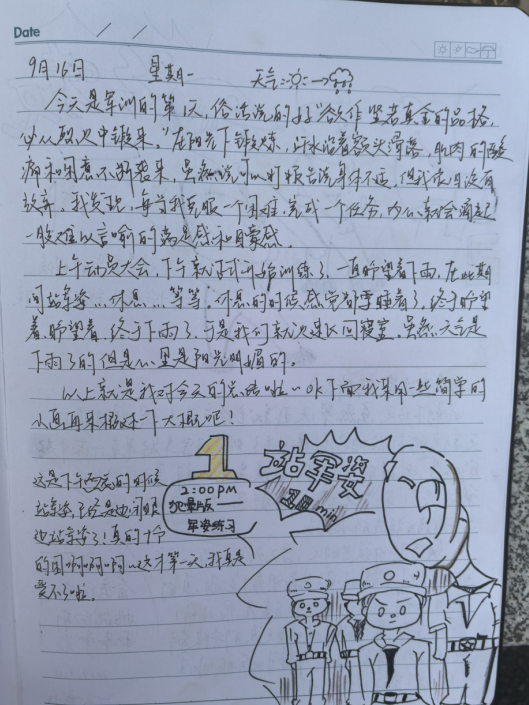 Date
9月16日 星期一 天气:
今天是军训的第1天,俗话说的好"欲作坚者真金的品格,
必从烈火中锻来。"在阳光下锻炼,汗水沿着额头滑落,肌肉的酸
痛和困意不断袭来,虽然说可以时报告说身体不适,但我依旧没有
放弃。我发现,每当我克服一个困难,完成一个任务,内心就会涌起
一股难以言喻的满足感和自豪感。
上午动员大会,下午就正式开始训练了,一直盼望着下雨,在此期
间站军姿…休息…等等,休息的时候感觉都要睡着了,终于盼望
着,盼望着,终于下雨了,于是我们就迅速返回寝室,虽然天气是
下雨了的但是心里是阳光明媚的。
以上就是我对今天的总结啦~ok下面我来用一些简学的
小画再来概述一下大概吧!
1
2:00PM
军姿练习
站军姿
30min
这是下午的时候
站军姿,已经是也闭眼
也站军姿了!真的十分
的困啊啊啊…这才第一天,我真是
受不了啦。